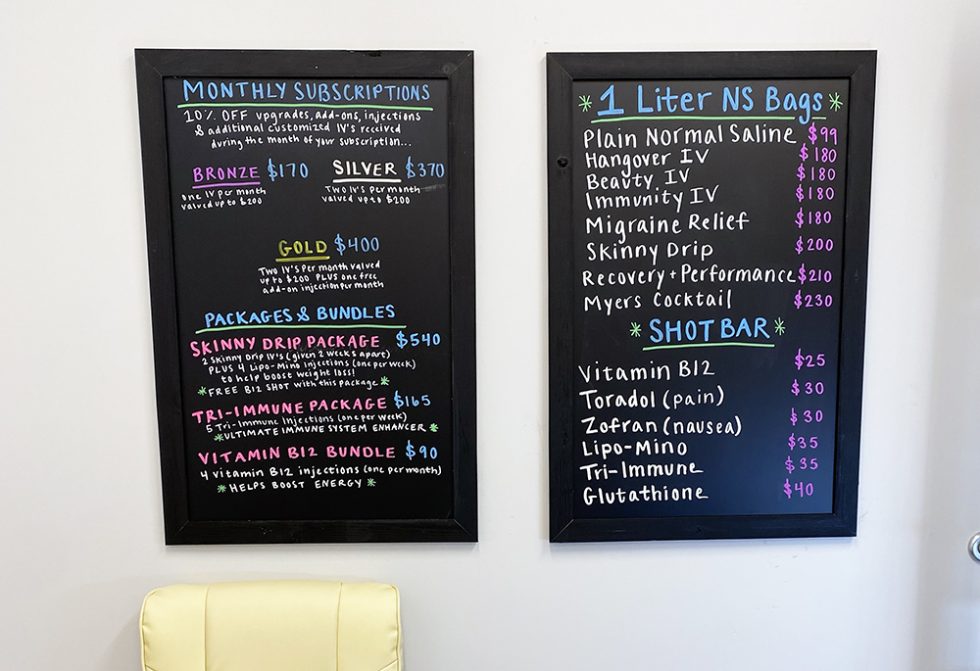 MONTHLY SUBSCRIPTIONS
10% OFF upgrades, add-ons, injections
& additional customized IV's received
during the month of your subscription...
BRONZE $170
one IV per month
valued up to $200
SILVER $370
Two IV's per month
valued up to $200
GOLD $400
Two IV's per month valued
up to $200 PLUS one free
add-on injection per month
PACKAGES & BUNDLES
SKINNY DRIP PACKAGE $540
2 Skinny Drip IV's (given 2 weeks apart)
PLUS 4 Lipo-Mino injections (one per week)
to help boost weight loss!
*FREE B12 SHOT with this package*
TRI-IMMUNE PACKAGE $165
5 Tri-Immune Injections (one per week)
*ULTIMATE IMMUNE SYSTEM ENHANCER*
VITAMIN B12 BUNDLE $90
4 vitamin B12 injections (one per month)
*HELPS BOOST ENERGY*
*1 Liter NS Bags*
Plain Normal Saline $99
Hangover IV $180
Beauty IV $180
Immunity IV $180
Migraine Relief $180
Skinny Drip $200
Recovery + Performance $210
Myers Cocktail $230
*SHOT BAR*
Vitamin B12 $25
Toradol (pain) $30
Zofran (nausea) $30
Lipo-Mino $35
Tri-Immune $35
Glutathione $40